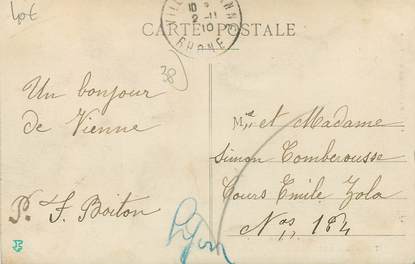 40€
CARTE POSTALE
10
2 - 11
10
RHONE
38
Un bonjour
de Vienne
P. F. Boiton
M.r et Madame
Simon Comberousse
Cours Emile Zola
Nos 184
Lyon